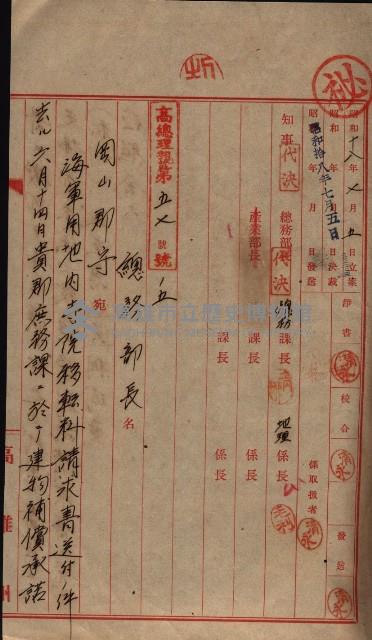 昭和十八年七月五日立案
昭和年月日決裁
昭和拾八年七月五日
昭和年月日發送
淨書
校合
發送
清水
係取扱者
清水
知事
代決
總務部長
代決
總務課長
地理係長
毛利
產業部長
課長
係長
課長
係長
高總理親第五七號
號ノ五
總務部長名
岡山郡守宛
海軍用地內寺院移転料請求書送付ノ件
去ル六月十四日貴郡庶務課ニ於テ建物補償承諾
高雄州
高雄市立歷史博物館